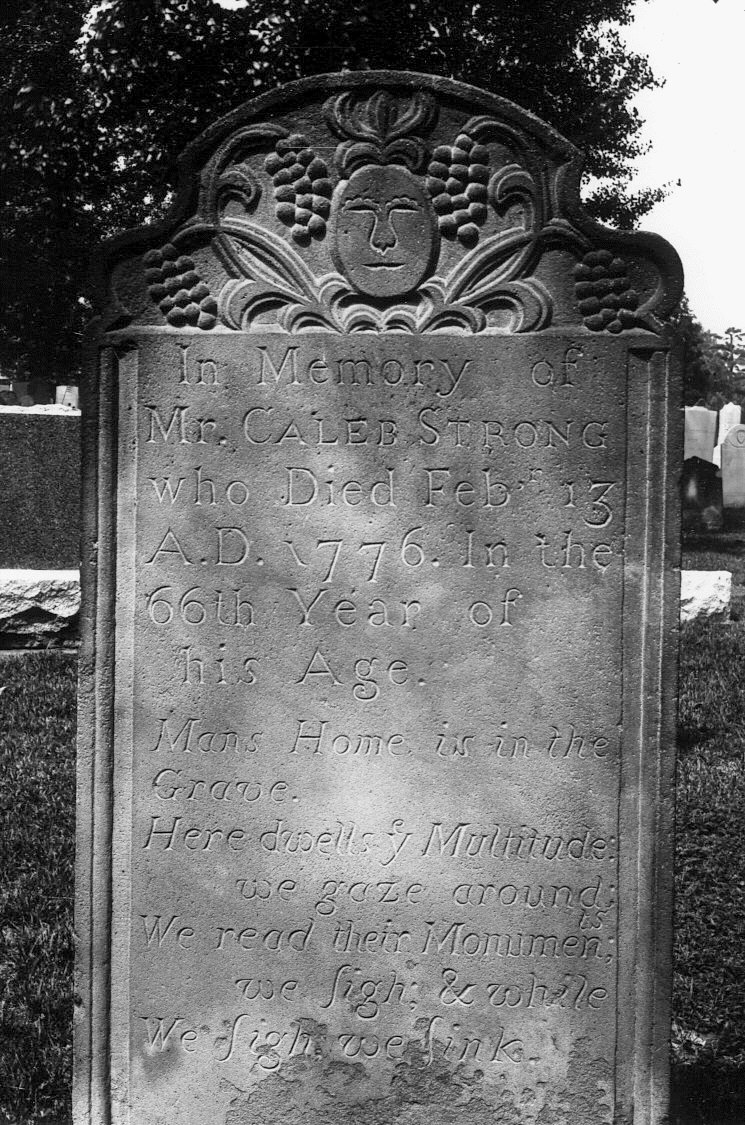 In Memory of
Mr. CALEB STRONG
who Died Feb.ʳ 13
A.D. 1776. In the
66th Year of
his Age.
Mans Home is in the
Grave.
Here dwells yᵉ Multitude:
we gaze around;
We read their Monumenᵗˢ;
we ſigh; & while
We ſigh, we ſink.